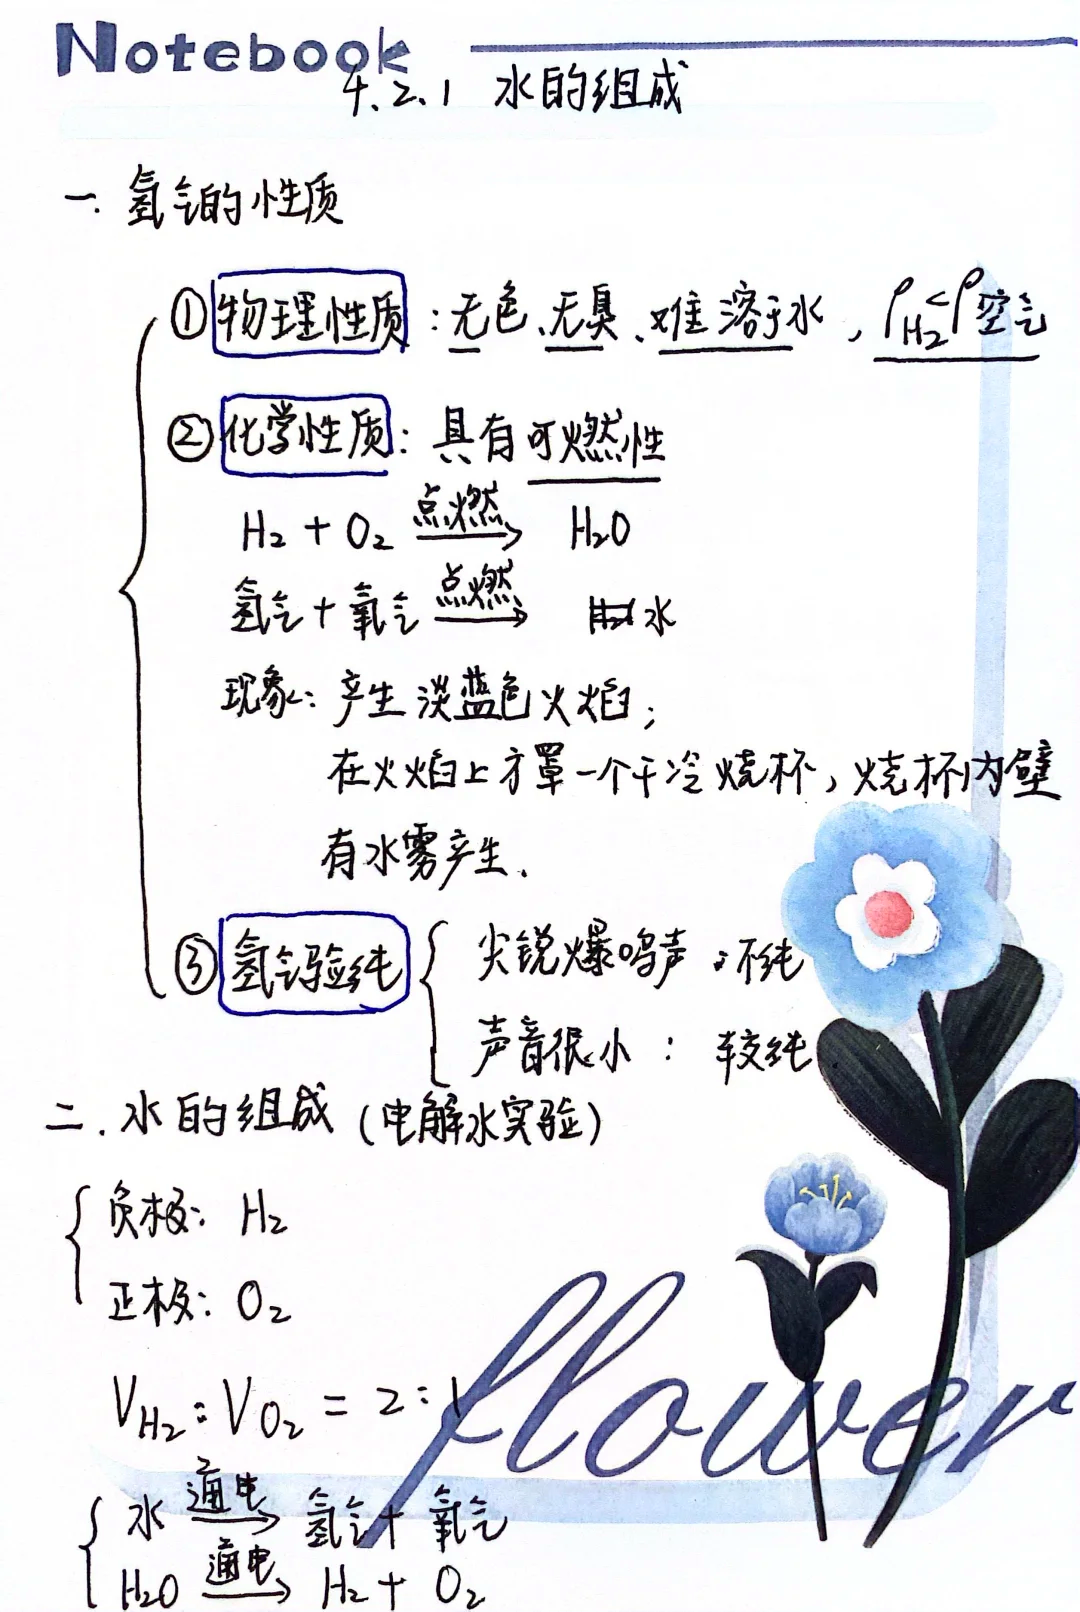 Notebook
4.2.1 水的组成
一. 氢气的性质
①物理性质:无色、无臭、难溶于水,ρH₂<ρ空气
②化学性质:具有可燃性
H₂+O₂ 点燃→ H₂O
氢气+氧气 点燃→ 水
现象:产生淡蓝色火焰;
在火焰上方罩一个干冷烧杯,烧杯内壁
有水雾产生.
③氢气验纯 尖锐爆鸣声:不纯
声音很小:较纯
二.水的组成(电解水实验)
负极:H₂
正极:O₂
VH₂:VO₂=2:1
flower
水 通电→ 氢气+氧气
H₂O 通电→ H₂+O₂